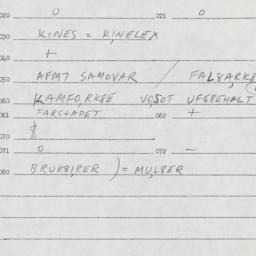 020 0 021 0
030 KINES = KINELEX
040 +
050 AFM7 SAMOVAR / FAL8ARK8
060 KAMFO,RK8E VO,SOT UFGBEHALT
061 FARC+ADET 060 +
070
071 0 072 —
080 BRUK8,RER ) = MUL8ER